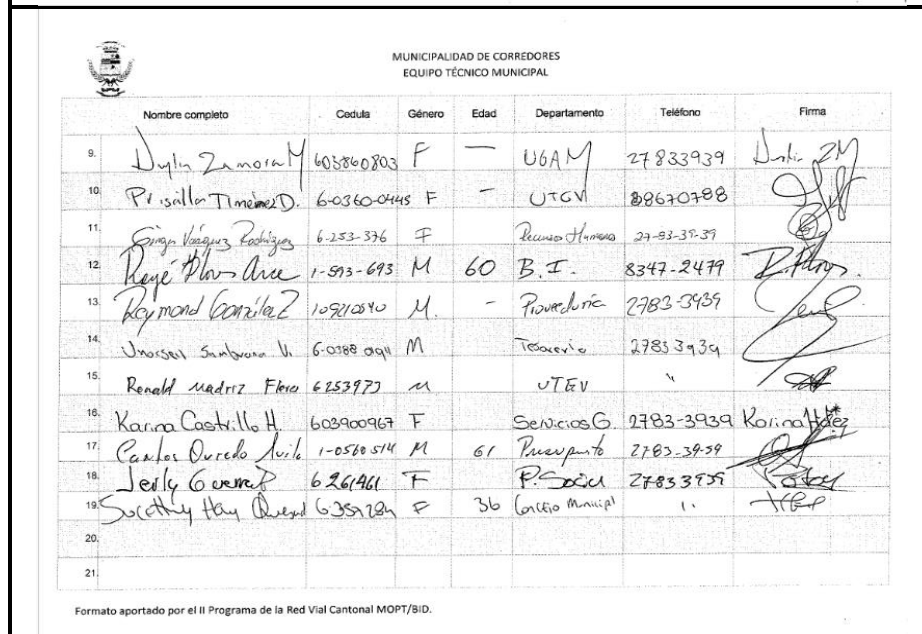 MUNICIPALIDAD DE CORREDORES
EQUIPO TÉCNICO MUNICIPAL
Nombre completo Cedula Género Edad Departamento Teléfono Firma
9. Zamora M 603860803 F — UGAM 27833939 ZM
10. Prisilla Timénez D. 6-0360-0445 F - UTGV 88670788
11. Vásquez Rodríguez 6-253-376 F Recursos Humanos 27-83-39-39
12. Flores Arce 1-593-693 M 60 B.I. 8347-2479 R. Flores
13. Raymond González 109210540 M. - Proveeduría 2783-3939
14. Sambrana V. 6-0388 M Tesorería 27833939
15. Renald Madriz Flores 6253973 M UTGV "
16. Karina Castrillo H. 603900967 F Servicios G. 2783-3939 Karina
17. Carlos Oviedo Avila 1-0560514 M 61 Presupuesto 2783-3939
18. Jerly Guerra 6 261461 F P. Social 27833939
19. 6359284 F 36 Concejo Municipal
20.
21.
Formato aportado por el II Programa de la Red Vial Cantonal MOPT/BID.